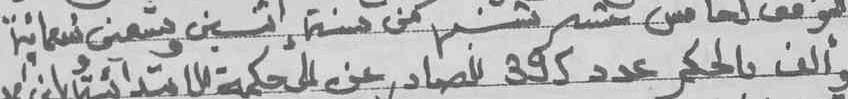 الموفى الخامس عشر شتنبر من سنة اثنين وتسعين تسعمائة
وألف بالحكم عدد 395 الصادر عن المحكمة الابتدائية